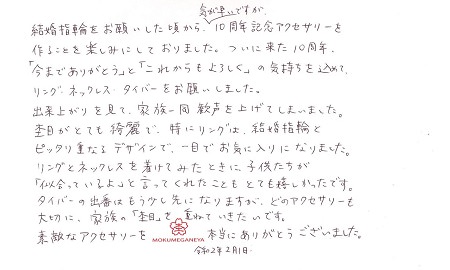 気が早いですが、
結婚指輪をお願いした頃から、10周年記念アクセサリーを
作ることを楽しみにしておりました。ついに来た10周年、
「今までありがとう」と「これからもよろしく」の気持ちを込めて、
リング、ネックレス、タイバーをお願いしました。
出来上がりを見て、家族一同歓声を上げてしまいました。
杢目がとても綺麗で、特にリングは、結婚指輪と
ピッタリ重なるデザインで、一目でお気に入りになりました。
リングとネックレスを着けてみたときに、子供たちが
「似合っているよ」と言ってくれたこともとても嬉しかったです。
タイバーの出番はもう少し先になりますが、どのアクセサリーも
大切に、家族の「杢目」を重ねていきたいです。
素敵なアクセサリーを 本当にありがとうございました。
MOKUMEGANEYA
令和2年2月1日